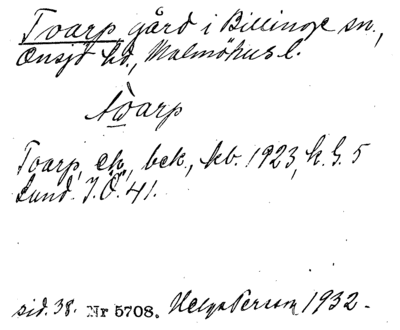 Tvarp gård i Billinge sn.,
Onsjö hd., Malmöhus l.
Tvarp, ek., bck., kb. 1923, k. G. 5
Lund. I.Ö. 41.
sid. 38. Nr 5708. Helga Persson 1932.